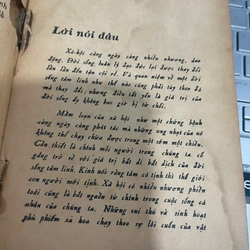 Lời nói đầu
Xã hội càng ngày càng nhiều nhương, dao
động. Đời sống luân lý đạo đức lại được thay đổi
lần lần đến tận cội rễ. Và quan niệm về một đời
sống tâm linh như thế nào cũng phải tùy theo đó
mà thay đổi; nhưng điều tất yếu là giá trị của
đời sống ấy không bao giờ bị từ chối.
Mầm loạn của xã hội như một chứng bệnh
càng ngày càng phát tác mà những ung nhọt của nó
không thể chạy chữa được trong một sớm một chiều.
Cần thiết là chính mỗi người trong chúng ta cố
gắng trở về với giá trị bất di bất dịch của đời
sống tâm linh. Kinh nói rằng tâm có tịnh thì thế giới
con người mới tịnh. Xã hội có nhiều nhương phiền
toái cũng là bắt nguồn từ chính trong cuộc sống cá
nhân của chúng ta. Những vui thú và sinh hoạt
phù phiếm xa hoa chạy theo sự lôi cuốn của vật